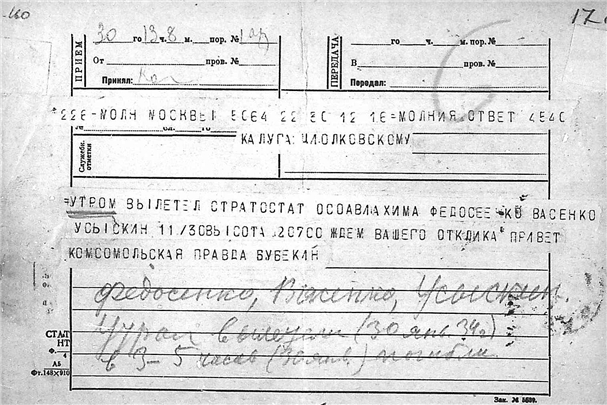 160
17
ПРИЕМ
30 го 13 ч. 8 м. пор. №
От пров. №
Принял:
ПЕРЕДАЧА
го ч. м. пор. №
В пров. №
Передал:
226=МОЛН МОСКВЫ 5064 22 30 12 16=МОЛНИЯ ОТВЕТ 4540
КАЛУГА ЦИОЛКОВСКОМУ
Служебн. отметки
=УТРОМ ВЫЛЕТЕЛ СТРАТОСТАТ ОСОАВИАХИМА ФЕДОСЕЕНКО ВАСЕНКО
УСЫСКИН 11/30 ВЫСОТА 20700 ЖДЕМ ВАШЕГО ОТКЛИКА ПРИВЕТ
КОМСОМОЛЬСКАЯ ПРАВДА БУБЕКИН
Федосенко, Васенко, Усыскин.
Утром вылетели (30 янв 34г)
в 3-5 часов (30 янв.) погибли
СТАНДАРТ
НТ
Ф. 4
А5
Фт. 148×210
Зак. № 5699.